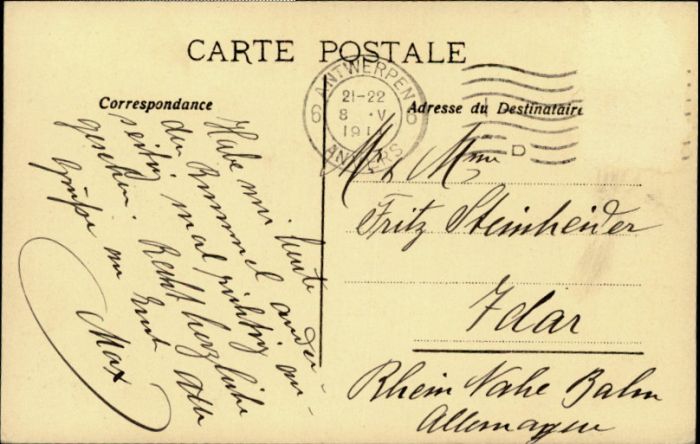 CARTE POSTALE
Correspondance
Adresse du Destinataire
ANTWERPEN
6 21-22 6
8 V
191
ANTWERPS
Habe mir heute
den Rummel ander-
seitig mal richtig an-
gesehen. Recht herzliche
Grüße an Euch alle
Max
Mr & Mme
Fritz Steinheider
Idar
Rhein Nahe Bahn
Allemagne